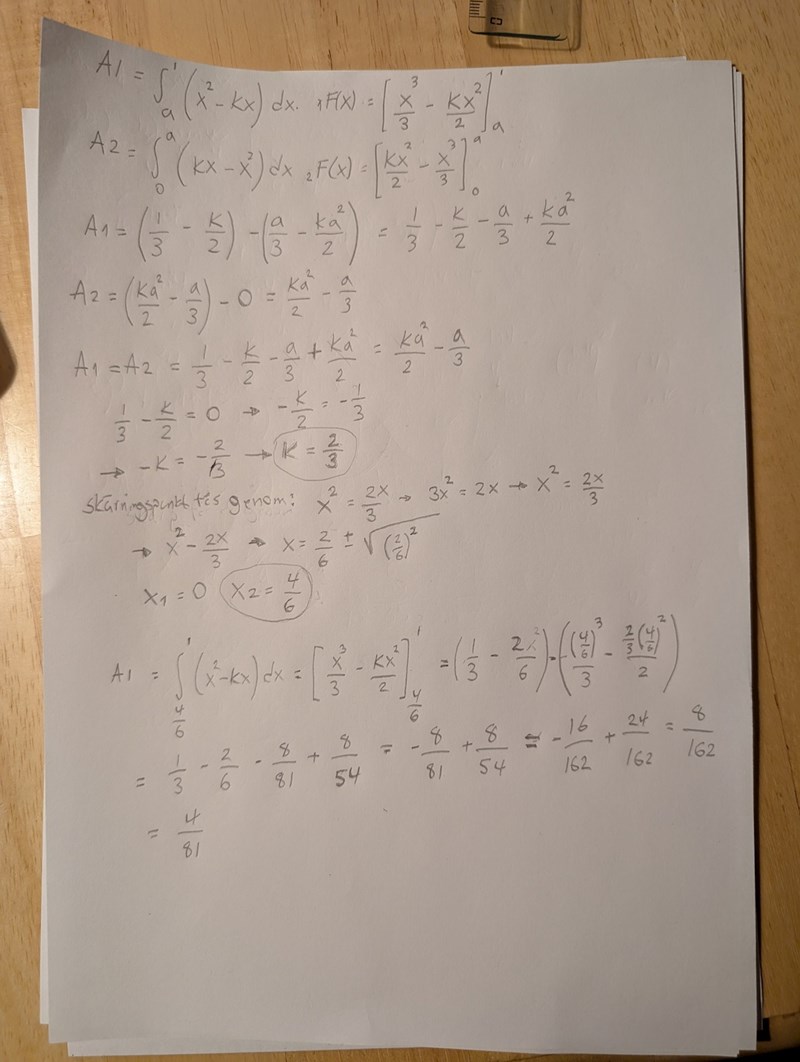 A1 = ∫ₐ¹ (x² - kx) dx. ₁F(x) = [x³/3 - kx²/2]ₐ¹
A2 = ∫₀ᵃ (kx - x²) dx ₂F(x) = [kx²/2 - x³/3]₀ᵃ
A1 = (1/3 - k/2) - (a/3 - ka²/2) = 1/3 - k/2 - a/3 + ka²/2
A2 = (ka²/2 - a/3) - 0 = ka²/2 - a/3
A1 = A2 = 1/3 - k/2 - a/3 + ka²/2 = ka²/2 - a/3
1/3 - k/2 = 0 → -k/2 = -1/3
→ -k = -2/3 → k = 2/3
skärningspunkt tas genom: x² = 2x/3 → 3x² = 2x → x² = 2x/3
→ x² - 2x/3 → x = 2/6 ± √(2/6)²
x₁ = 0 x₂ = 4/6
A1 = ∫_{4/6}^{1} (x² - kx) dx = [x³/3 - kx²/2]_{4/6}^{1} = (1/3 - 2x²/6) - ((4/6)³/3 - 2/3(4/6)²/2)
= 1/3 - 2/6 - 8/81 + 8/54 = -8/81 + 8/54 = -16/162 + 24/162 = 8/162
= 4/81